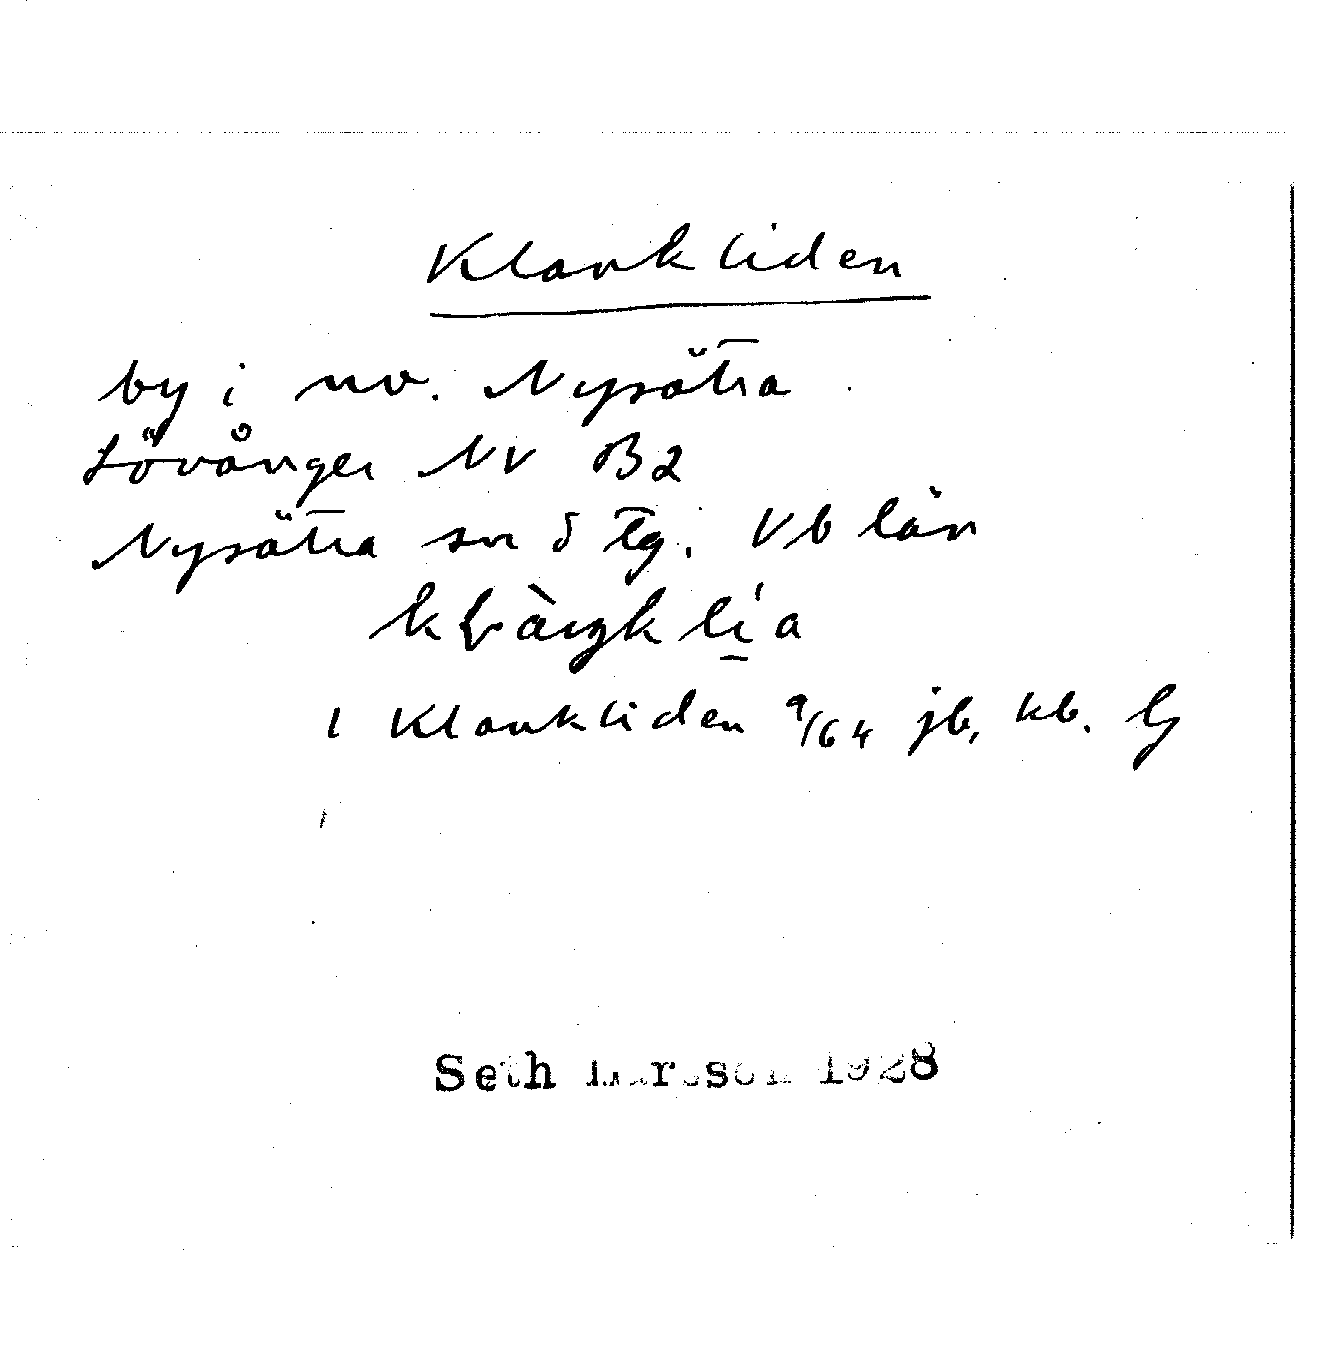 Klankliden
by i nv. Nysätra
Lövånger NV B2
Nysätra sn δ tg. Vb län
1 Klankliden 9/64 jb, kb. lj
Seth Larsson 1928